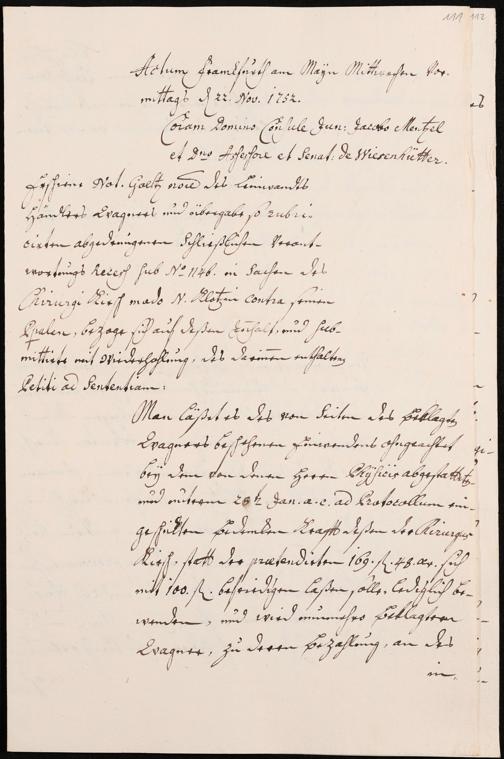 111 112
Actum Franckfurth am Mayn Mittwochen Vor-
mittags d. 22. Nov. 1752.
Coram Domino Consule Jun: Jacobo Mentzel
et Dno Assessore et Senat: de Wiesenhütter.
Erschiene Not. Goeltz noie des Leinwandts
Händlers Wagners und übergabe so rubri-
cirten abgedrungenen Schließlichen Verant-
wortungs Recess sub No. 1146. in Sachen des
Chirurgi Kirsch modo N. Klotzin contra seinen
Ppalen, bezoge sich auf deßen Inhalt, und sub-
mittirte mit Wiederhohlung, des darinnen enthalten
Petiti ad Sententiam:
Man läßet es des von Seiten des Beklagten
Wagners beschehenen Einwendens ohngeachtet
bey dem von denen Herren Physicis abgestatteten
und unterm 28t Jan. a. c. ad Protocollum ein-
geschickten Bedencken Krafft deßen der Chirurgus
Kirsch, statt der praetendirten 169. fl. 48. xr. sich
mit 100. fl. befriedigen laßen solle, lediglich be-
wenden, und wird nunmehro Beklagtern
Wagner, zu deren Bezahlung, an des
in